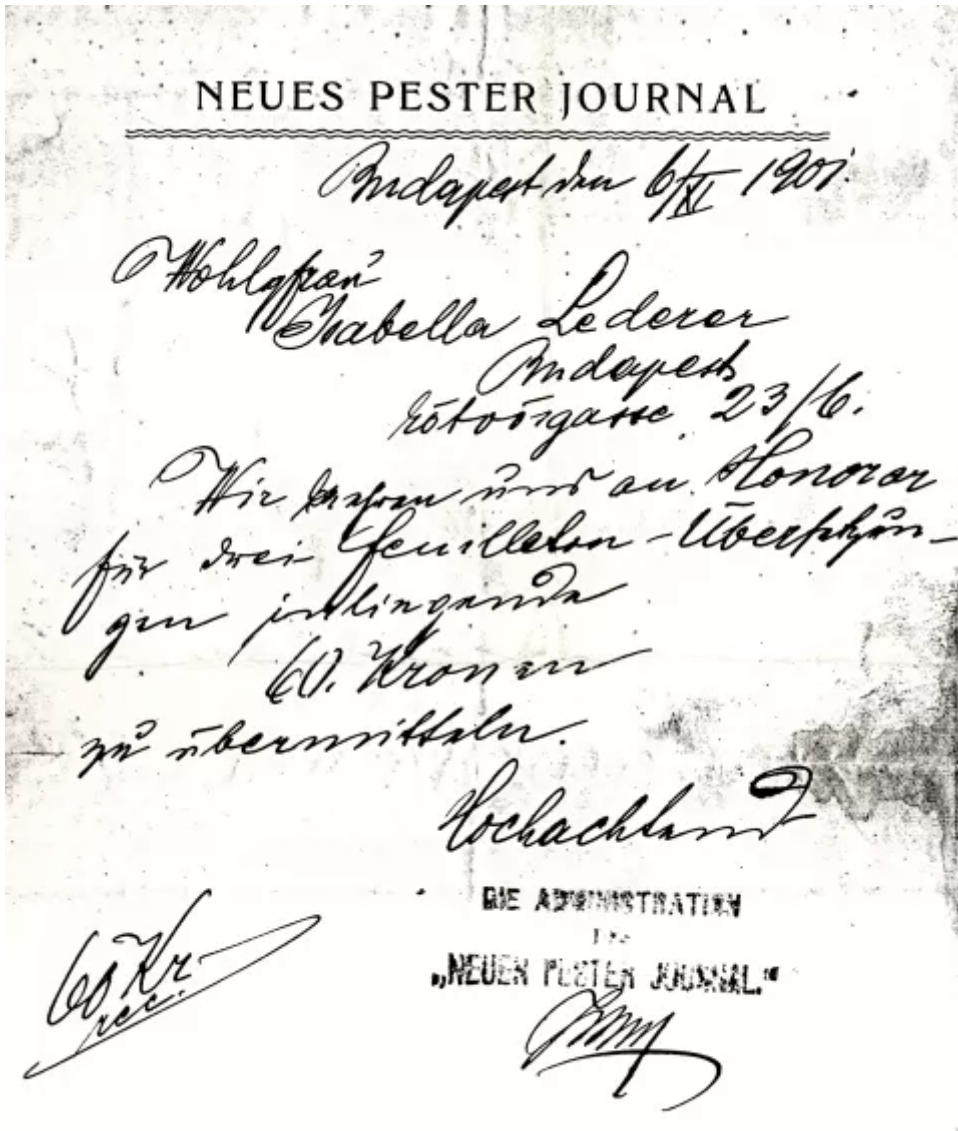 NEUES PESTER JOURNAL
Budapest den 6/XI 1901.
Wohlgfrau
Isabella Lederer
Budapest
Eötvösgasse 23/6.
Wir beehren uns an Honorar
für drei Feuilleton-Übersetzun-
gen inliegende
60. Kronen
zu übermitteln.
Hochachtend
DIE ADMINISTRATION
DES
„NEUEN PESTER JOURNAL."
60 Kr
rec.